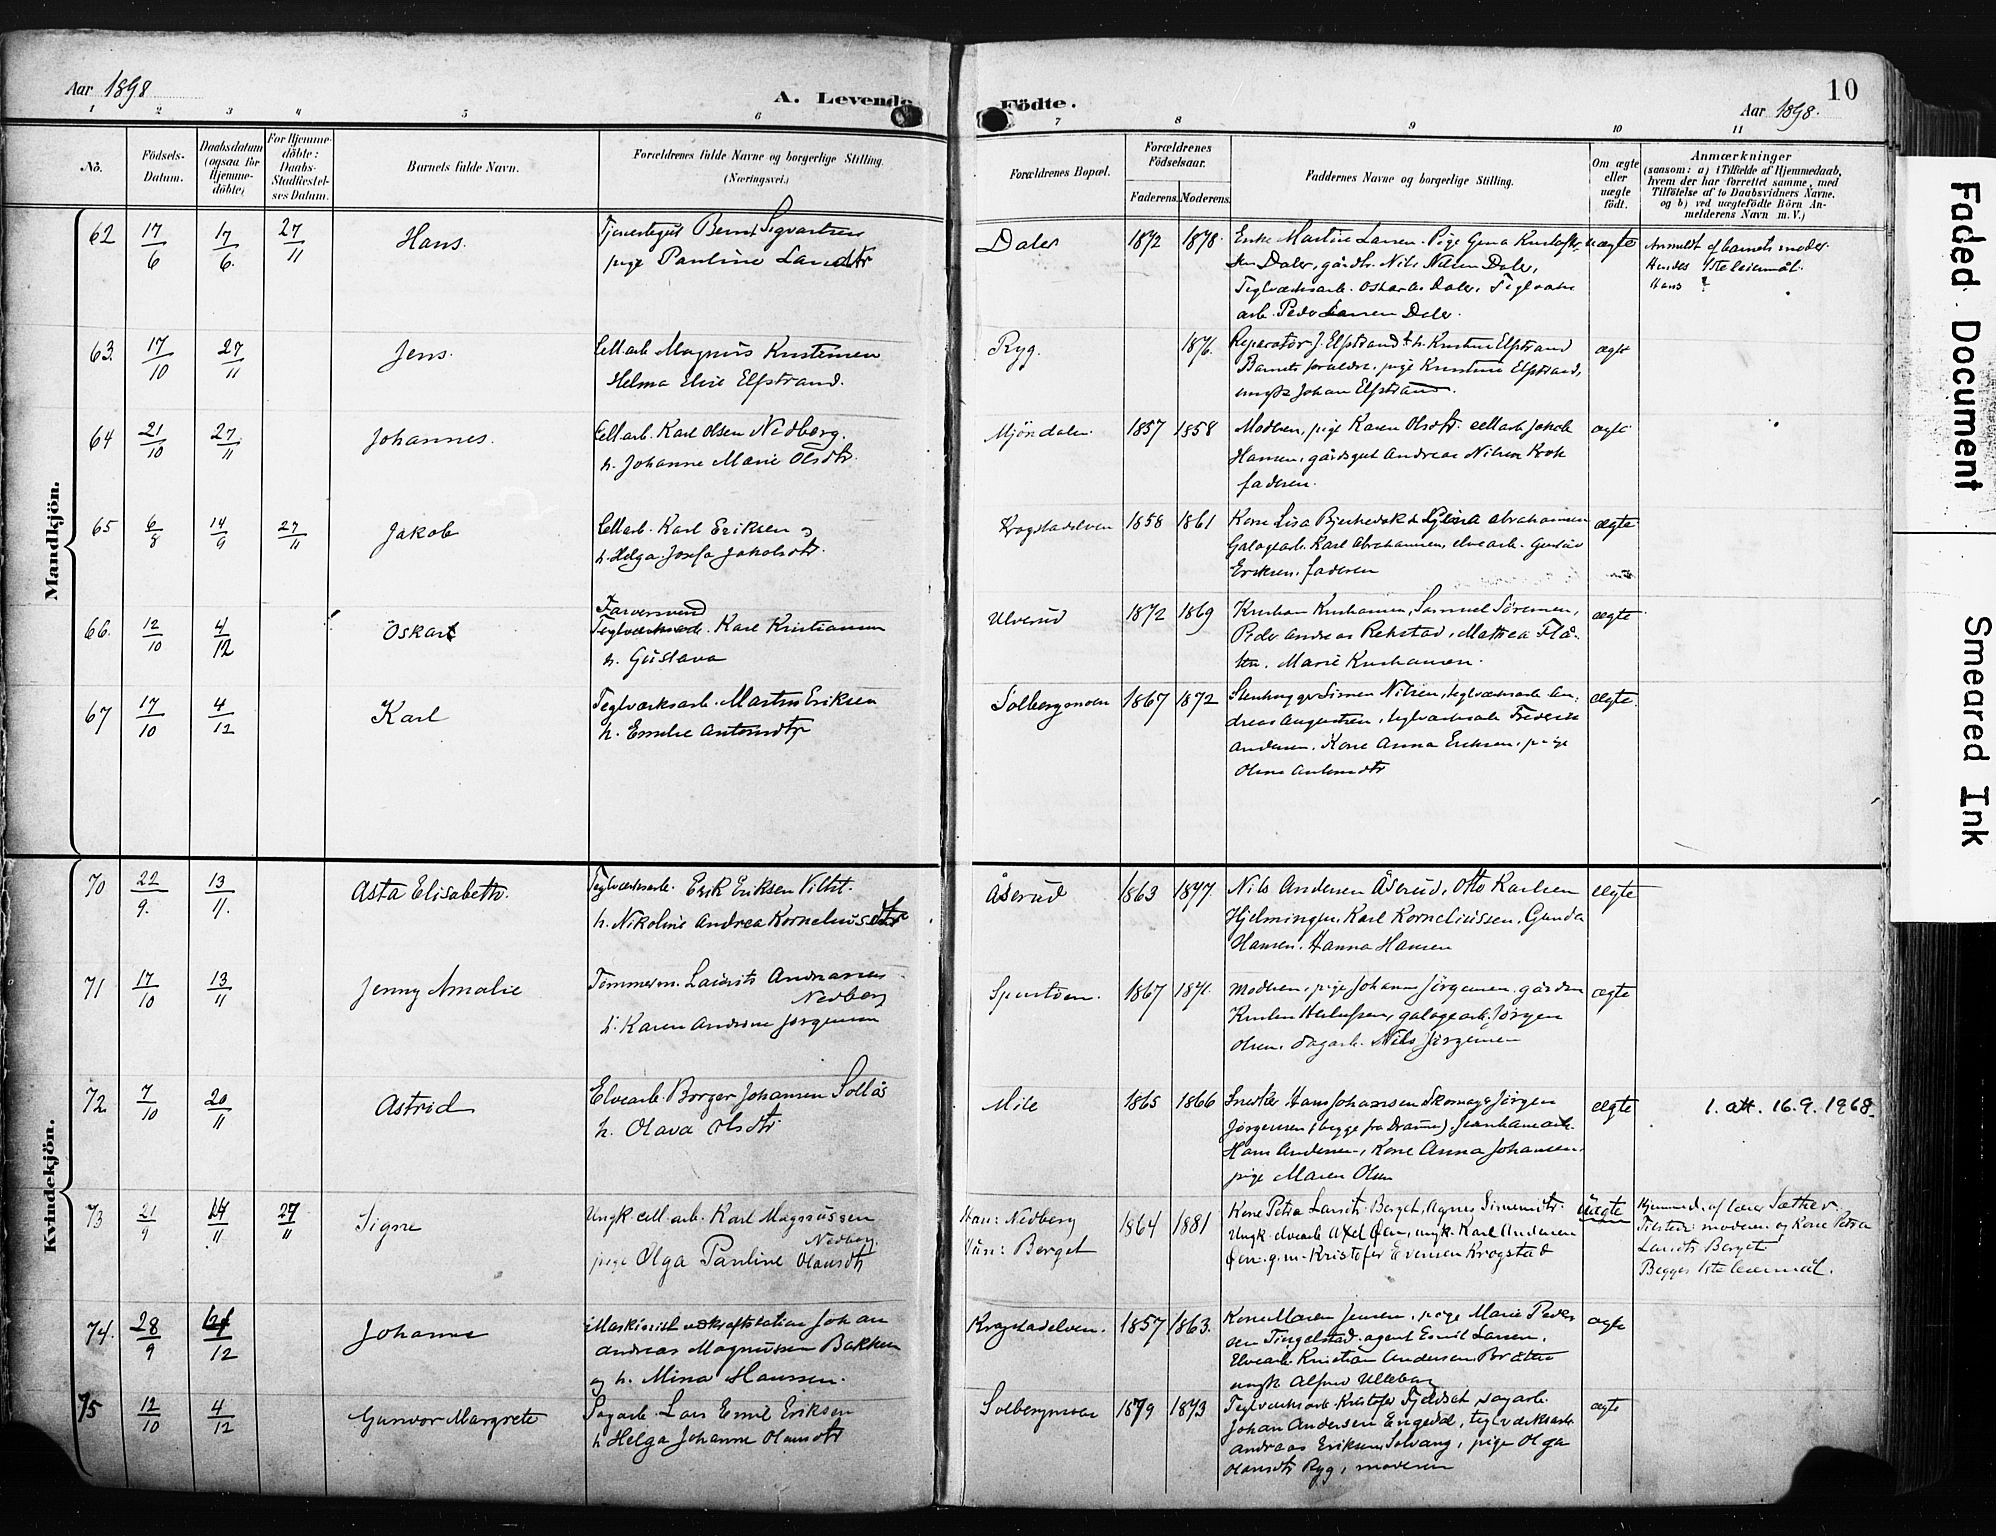 Aar 1898
A. Levende Födte.
Aar 1898.
10
1 2 3 4 5 6 7 8 9 10 11
No.
Födsels-Datum.
Daabsdatum (ogsaa for Hjemme-döbte)
For Hjemme-döbte: Daabs-Stadfæstel-ses Datum.
Barnets fulde Navn.
Forældrenes fulde Navne og borgerlige Stilling. (Næringsvei.)
Forældrenes Bopæl.
Forældrenes Födselsaar.
Faderens. Moderens.
Faddernes Navne og borgerlige Stilling.
Om ægte eller uægte födt.
Anmærkninger
(saasom: a) i Tilfælde af Hjemmedaab,
hvem der har forrettet samme, med
Tilföielse af to Daabsvidners Navne,
og b) ved uægtefödte Börn An-
melderens Navn m. V.)
Mandkjön.
62 17/6 17/6. 27/11 Hans.
Tjenestegut Bernt Sigvartsen
pige Pauline Larsdtr
Daler 1872 1878.
Enke Martine Larsen. Pige Gina
Daler, gårdbr. Nils Nilsen Daler,
Teglværksarb. Oskar Daler, Teglværks
arb. Peder Larsen Daler.
uægte
Anmeldt af barnets moder.
Hendes 1ste leiermål.
Hans ?
63. 17/10 27/11 Jens.
Cell.arb. Magnus Kristensen
Helma Elise Elfstrand.
Ryg. 1876.
Reparatör J. Elfstrand & h. Kristine Elfstrand
Barnets forældre, pige Kristine Elfstrand,
ungk. Johan Elfstrand.
ægte
64 21/10 27/11 Johannes.
Cell.arb. Karl Olsen Nedberg.
h. Johanne Marie Olsdtr.
Mjöndalen 1857 1858
Moderen, pige Karen Olsdtr. cell.arb Jakob
Hansen, gårdsgut Andreas Nilsen Krok
faderen.
ægte
65 6/8 14/9 27/11 Jakob
Cell.arb. Karl Eriksen og
h. Helga Josefa Jakobsdtr.
Krogstadelven 1858 1861
Kone Lisa Bjerkedok & Abrahamsen
Galogearb. Karl Abrahamsen, elvearb. Gustav
Eriksen. faderen
ægte
66. 12/10 4/12 Oskar
Farversvend
Teglværksarb. Karl Kristiansen
h. Gustava
Ulverud 1872 1869
Kristian Kristiansen, Samuel Sörensen,
Peder Andreas Rekstad, Mathea Flå-
ten. Marie Kristiansen.
ægte
67 17/10 4/12 Karl
Teglværksarb. Martin Eriksen
h. Emelie Antonsdtr
Solbergmoen 1867 1872
Stenhugger Simen Nilsen, teglværksarb. An-
dreas Augustsen, teglværksarb Frederik
Andersen. Kone Anna Eriksen, pige
Oline Antonsdtr
ægte.
Kvindekjön.
70 22/9. 13/11. Asta Elisabeth.
Teglværksarb. Erik Eriksen
h. Nikoline Andrea Korneliusdtr
Åserud 1863 1877.
Nils Andersen Åserud, Otto Karlsen
Hjelmingen, Karl Korneliussen, Gunda
Hansen. Hanna Hansen
ægte
71 17/10 13/11 Jenny Amalie
Tömmerm. Laurits Andreasen
Nedberg
h. Karen Andrine Jörgensen
1867 1871.
Moderen, pige Johanne Jörgensen. gårdm
galogearb. Jörgen
Olsen. dagarb. Nils Jörgensen
ægte
72. 7/10 20/11 Astrid
Elvearb. Borger Johansen Sollås
h. Olava Olsdtr
Mile 1865 1866
Snedker Hans Johansen Skomager Jörgen
Jörgensen (begge fra Drammen).
Hans Andersen, Kone Anna Johansen,
pige Maren Olsen
ægte
1. att. 16.9.1968.
73 21/9 14/11 27/11 Signe
Ungk. cell.arb. Karl Magnussen
Nedberg.
pige Olga Pauline Olausdtr
Han: Nedberg
Hun: Berget
1864 1881
Kone Petra Larsdtr Berget, Agnes Simensdtr.
Ungk. elvearb Axel Öen, ungk. Karl Andersen
Öen. g.m. Kristofer Evensen Krogstad
Uægte
Hjemmed. af lærer Sæther.
Tilstede: moderen og Kone Petra
Larsdtr Berget
Begges 1ste leiermål.
74. 28/9 4/12 Johanne
Maskinist v/kraftstation Johan
Andreas Magnussen Bakken
og h. Mina Hanssen.
Krogstadelven. 1857 1863.
Kone Maren Jensen, pige Marie Peder
sen Tingelstad. agent Emil Larsen,
Elvearb. Kristian Andersen Bråten
ungk Alfred Ulleberg
ægte
75 12/10 4/12 Gunvor Margrete
Sagarb. Lars Emil Eriksen
h Helga Johanne Olausdtr
Solbergmoen 1879 1873
Teglværksarb. Kristofer, sagarb.
Johan Andersen Engedal, teglværksarb
Andreas Eriksen Solvang, pige Olga
Olausdtr Ryg, moderen
ægte
Faded Document
Smeared Ink